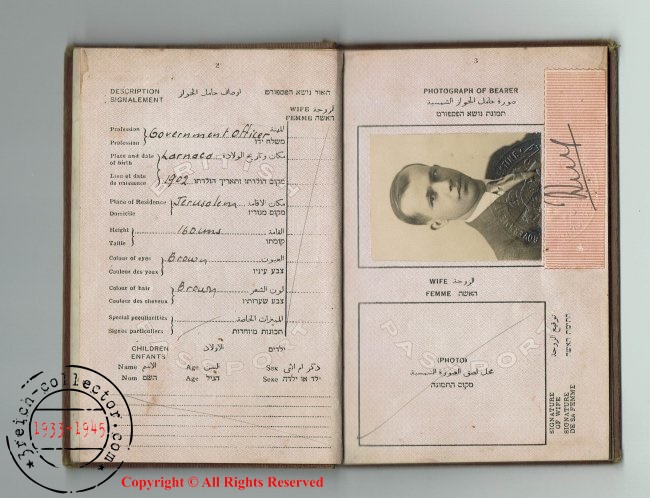 2
DESCRIPTION
SIGNALEMENT
اوصاف حامل الجواز
תאור נושא הפספורט
WIFE الزوجة
FEMME האשה
Profession
Government Officer
المهنة
Profession
משלח ידו
Place and date
of birth
Larnaca
مكان وتاريخ الولادة
Lieu et date
de naissance
1902
מקום הולדתו ותאריך הולדתו
Place of Residence
Jerusalem
مكان الاقامة
Domicile
מקום מגוריו
Height
160 cms
القامة
Taille
קומתו
Colour of eyes
Brown
العيون
Couleur des yeux
צבע עיניו
Colour of hair
Brown
لون الشعر
Couleur des cheveux
צבע שערותיו
Special peculiarities
المميزات الخاصة
Signes particuliers
תכונות מיוחדות
CHILDREN
ENFANTS
الاولاد
ילדים
Name الاسم
Age السن
Sex ذكر ام انثى
Nom השם
Age הגיל
Sexe ילד או ילדה
PASSPORT
3
PHOTOGRAPH OF BEARER
صورة حامل الجواز الشمسية
תמונת נושא הפספורט
WIFE الزوجة
FEMME האשה
PASSPORT
(PHOTO)
محل لصق الصورة الشمسية
מקום התמונה
SIGNATURE
OF WIFE
SIGNATURE
DE SA FEMME
توقيع الزوجة
חתימת האשה
3reich-collector.com
1933-1945
Copyright © All Rights Reserved